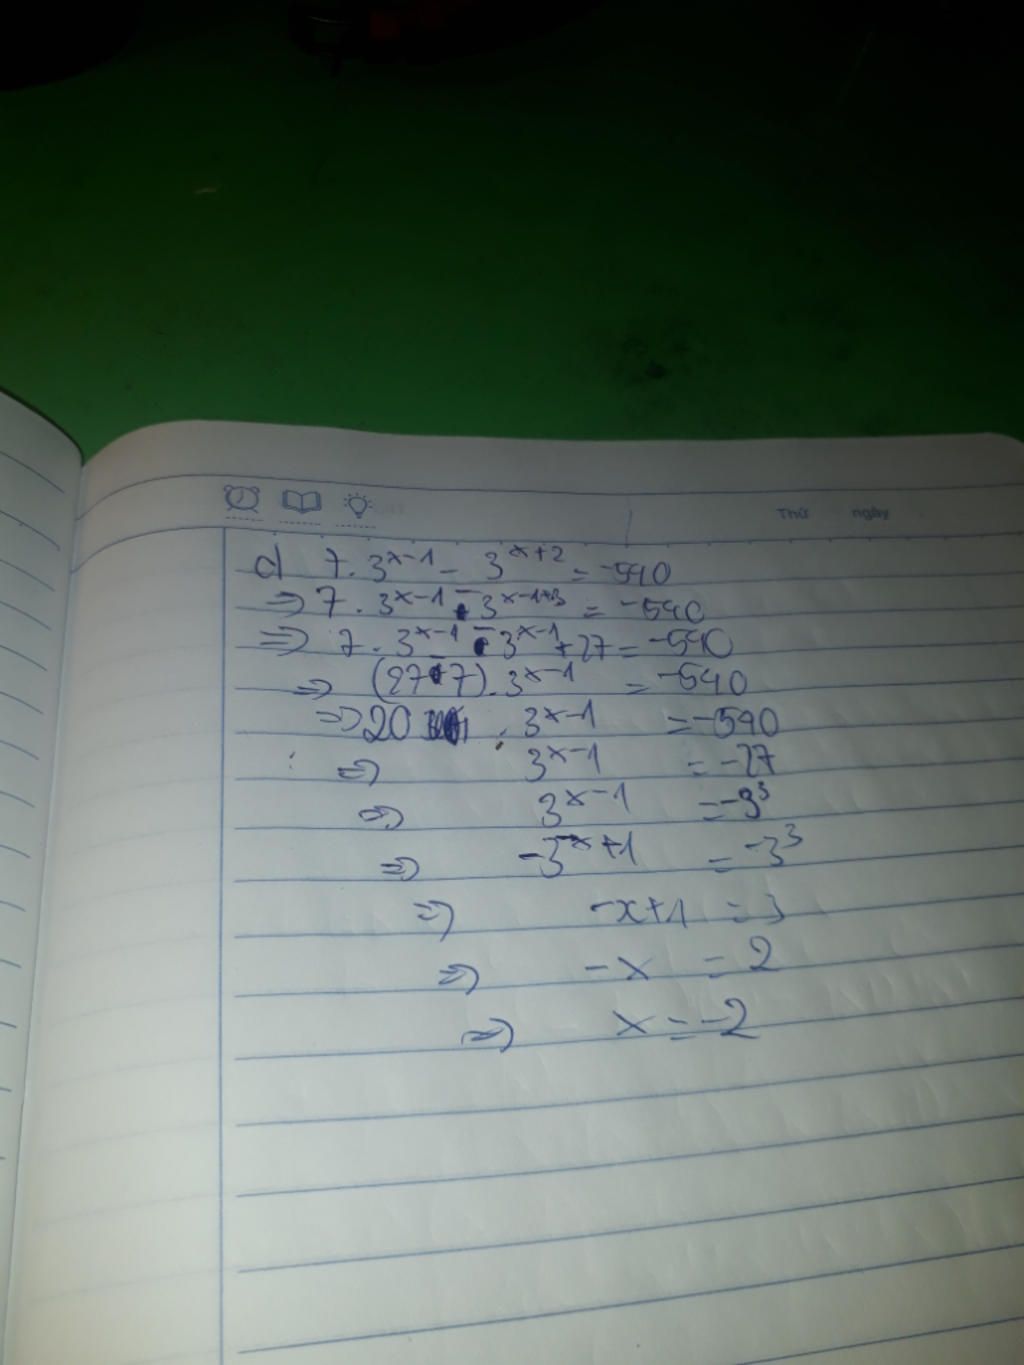 Thứ ngày
d 7. 3^x-1 - 3^x+2 = -540
=> 7 . 3^x-1 - 3^x-1+3 = -540
=> 7. 3^x-1 - 3^x-1 + 27 = -540
=> (27-7). 3^x-1 = -540
=> 20 . 3^x-1 = -540
=> 3^x-1 = -27
=> 3^x-1 = -3³
=> -3^-x+1 = -3³
=> -x+1 = 3
=> -x = 2
=> x = -2